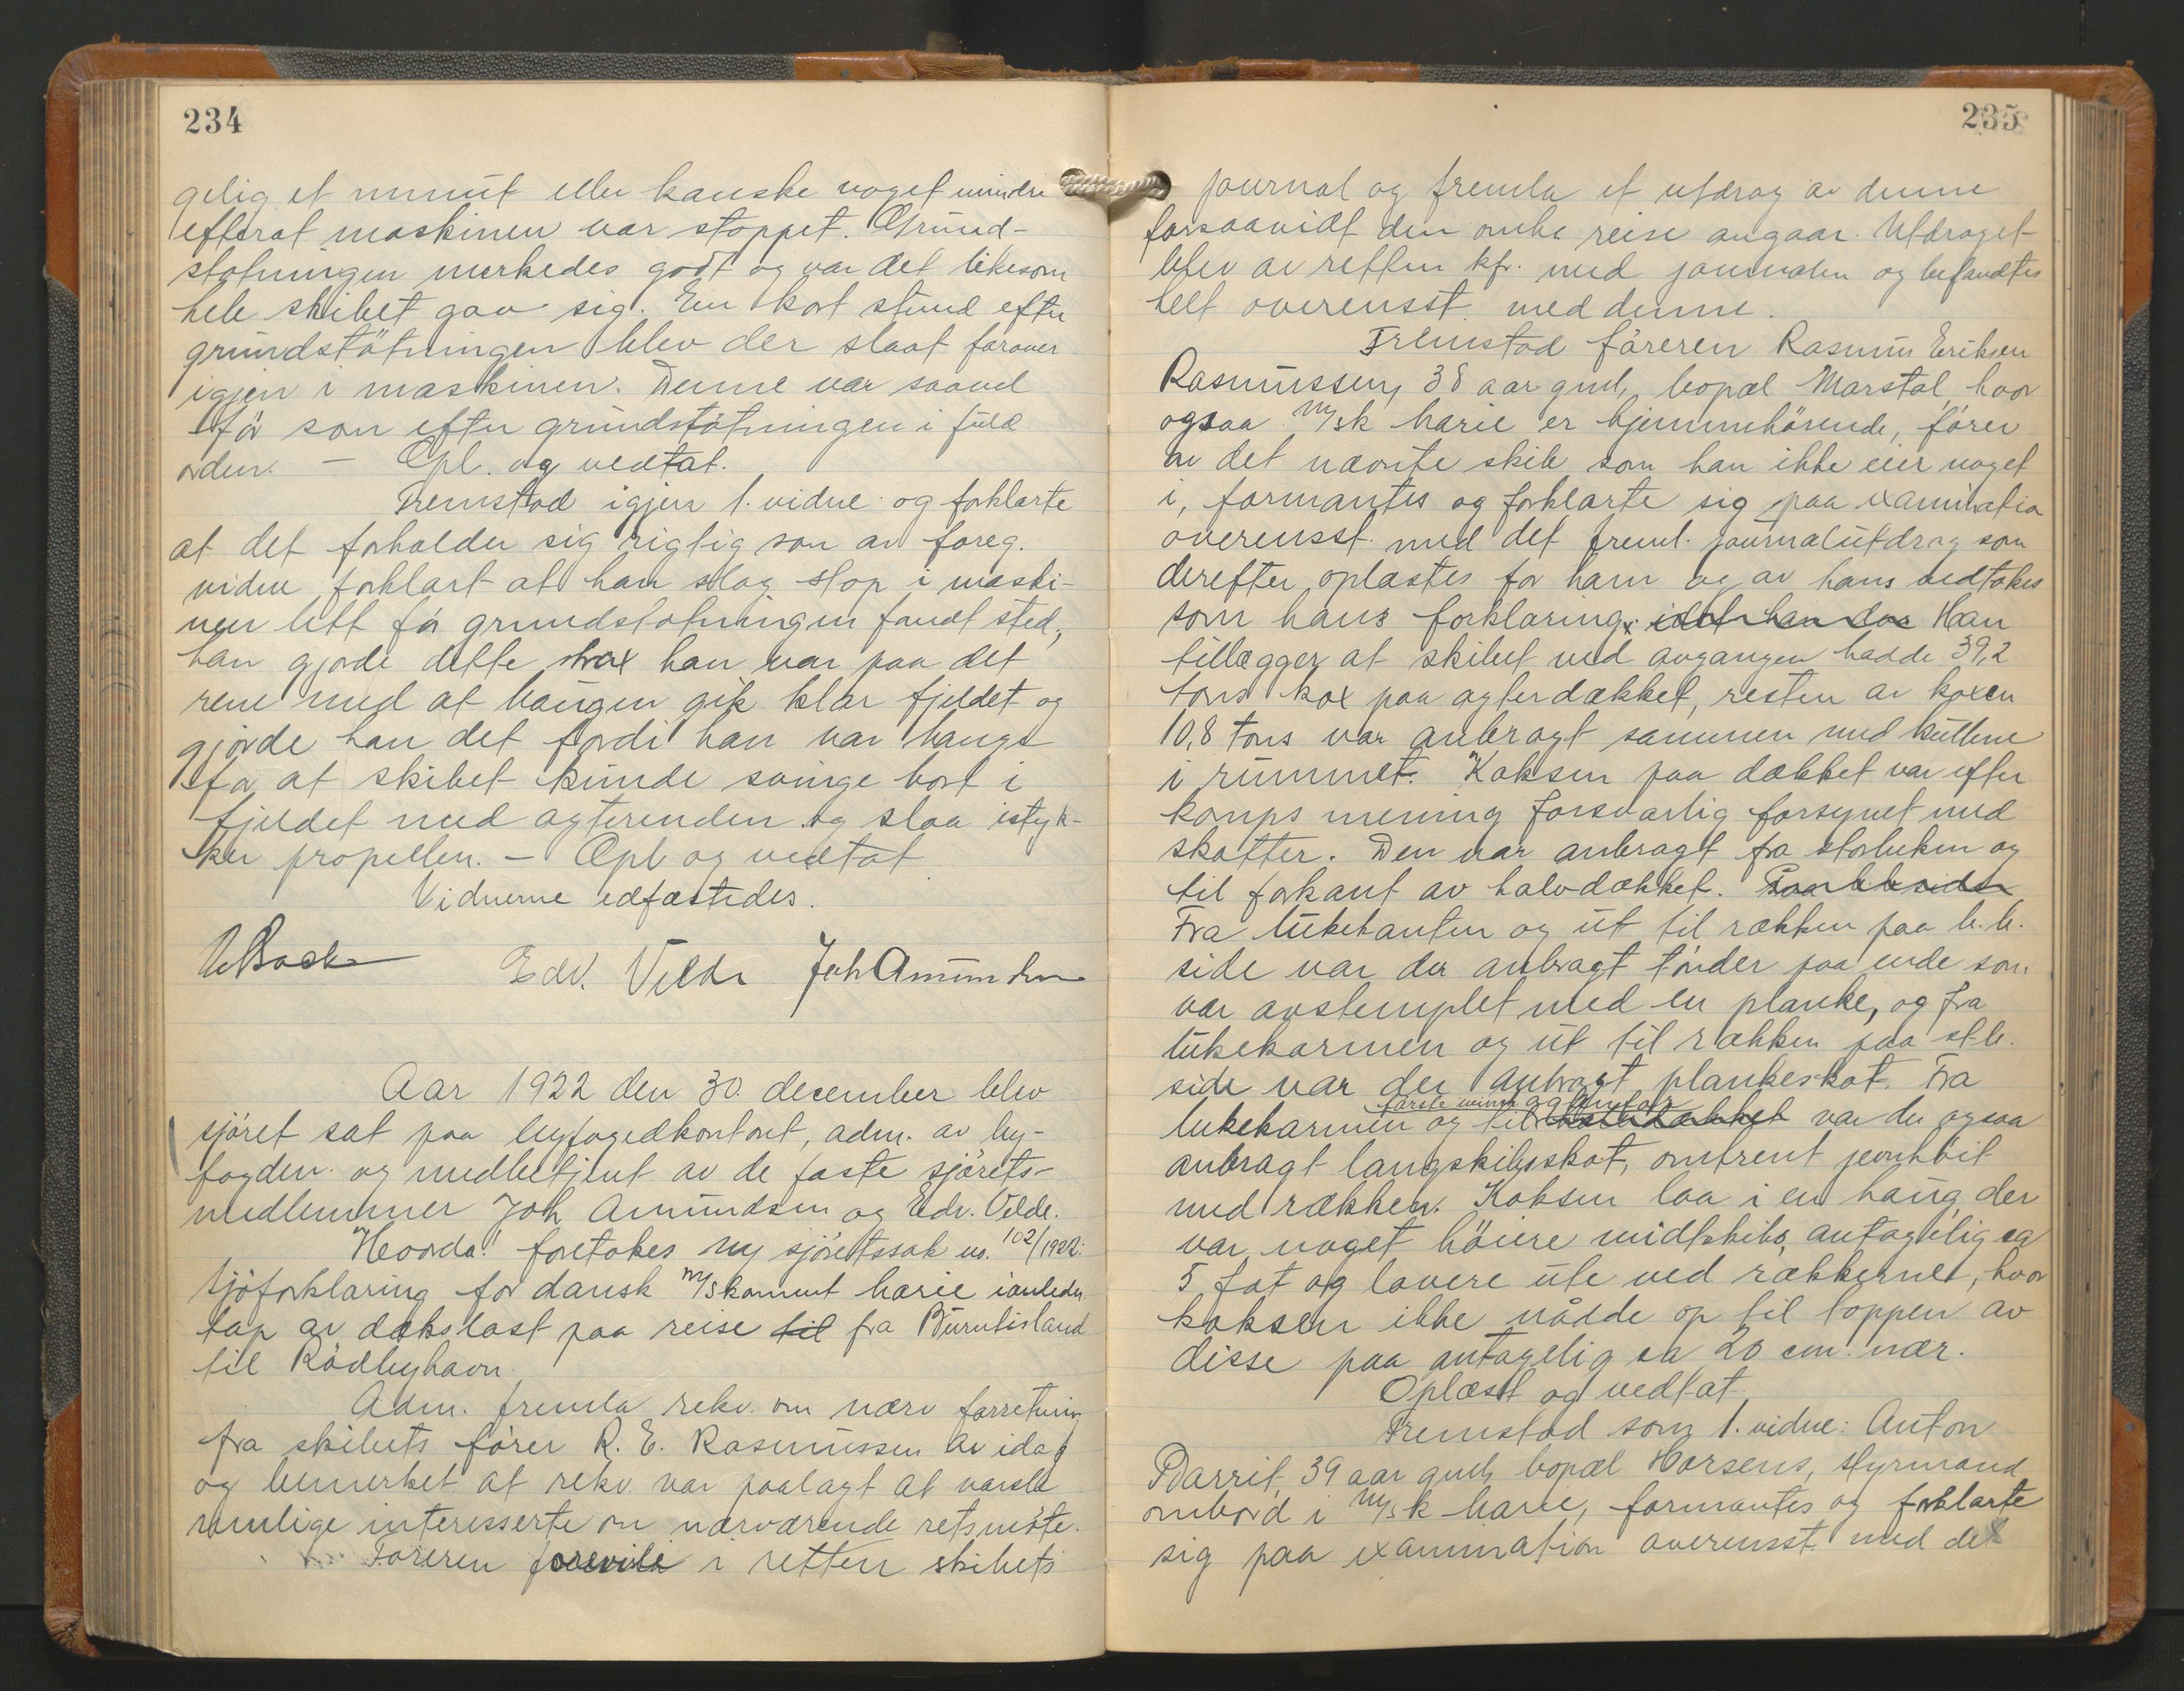 234
gelig et minut eller kanske noget mindre
efterat maskinen var stoppet. Grund-
støtningen merkedes godt og var det likesom
hele skibet gav sig. En kort stund efter
grundstøtningen blev der slaat forover
igjen i maskinen. Denne var saavel
før som efter grundstøtningen i fuld
orden. – Opl. og vedtat.
Fremstod igjen 1. vidne og forklarte
at det forholder sig rigtig som av foreg.
vidne forklart at han slog stop i maski-
nen litt før grundstøtningen fandt sted,
han gjorde dette strax han var paa det
rene med at baugen gik klar fjeldet og
gjorde han det fordi han var bange
for at skibet kunde svinge bort i
fjeldet med agterenden og slaa istyk-
ker propellen. – Opl og vedtat
Vidnerne edfæstedes.
Edv. Velde Joh Amundsen
Aar 1922 den 30. december blev
sjøret sat paa byfogedkontoret, adm. av by-
fogden og medbetjent av de faste sjørets-
medlemmer Joh Amundsen og Edv. Velde.
Hvorda! foretokes ny sjøretssak no. 102/1922:
Sjøforklaring for dansk m/skonnert Karie i anledn.
tap av dækslast paa reise til fra Burntisland
til Rødbyhavn.
Adm. fremla rekv. om nærv forretning
fra skibets fører R. E. Rasmussen av idag
og bemerket at rekv. var paalagt at varsle
samlige interesserte om nærværende retsmøte.
Føreren foreviste i retten skibets
235
journal og fremla et utdrag av denne
forsaavidt den omhe reise angaar. Utdraget
blev av retten kfr. med journalen og befandtes
helt overensst. med denne.
Fremstod føreren Rasmus Eriksen
Rasmussen, 38 aar gml, bopæl Marstal, hvor
ogsaa m/sk Karie er hjemmehørende, fører
av det nævnte skib som han ikke eier noget
i, formantes og forklarte sig paa examination
overensst. med det freml. journalutdrag som
derefter oplæstes for ham og av ham vedtokes
som hans forklaring. idet han dog Han
tillægger at skibet ved avgangen hadde 39,2
tons kox paa agterdækket, resten av koxen
10,8 tons var anbragt sammen med kullene
i rummet. Koksen paa dækket var efter
komps mening forsvarlig forsynet med
skotter. Den var anbragt fra storluken og
til forkant av halvdækket.
Fra lukekanten og ut til rækken paa b.b.
side var der anbragt tønder paa ende som
var avstemplet med en planke, og fra
lukekarmen og ut til rækken paa st.b.
side var der anbragt plankeskot. Fra
første winsh og
lukekarmen og til halvdækket var der ogsaa
anbragt langskibsskot, omtrent jevnhøit
med rækken. Koksen laa i en haug, der
var noget høiere midtskibs, antagelig ca
5 fot og lavere ute ved rækkerne, hvor
koksen ikke nådde op til toppen av
disse paa antagelig ca 20 cm. nær.
Oplæst og vedtat.
Fremstod som 1. vidne: Anton
Parrit, 39 aar gml, bopæl Horsens, styrmand
ombord i m/sk Karie, formantes og forklarte
sig paa examination overensst. med det